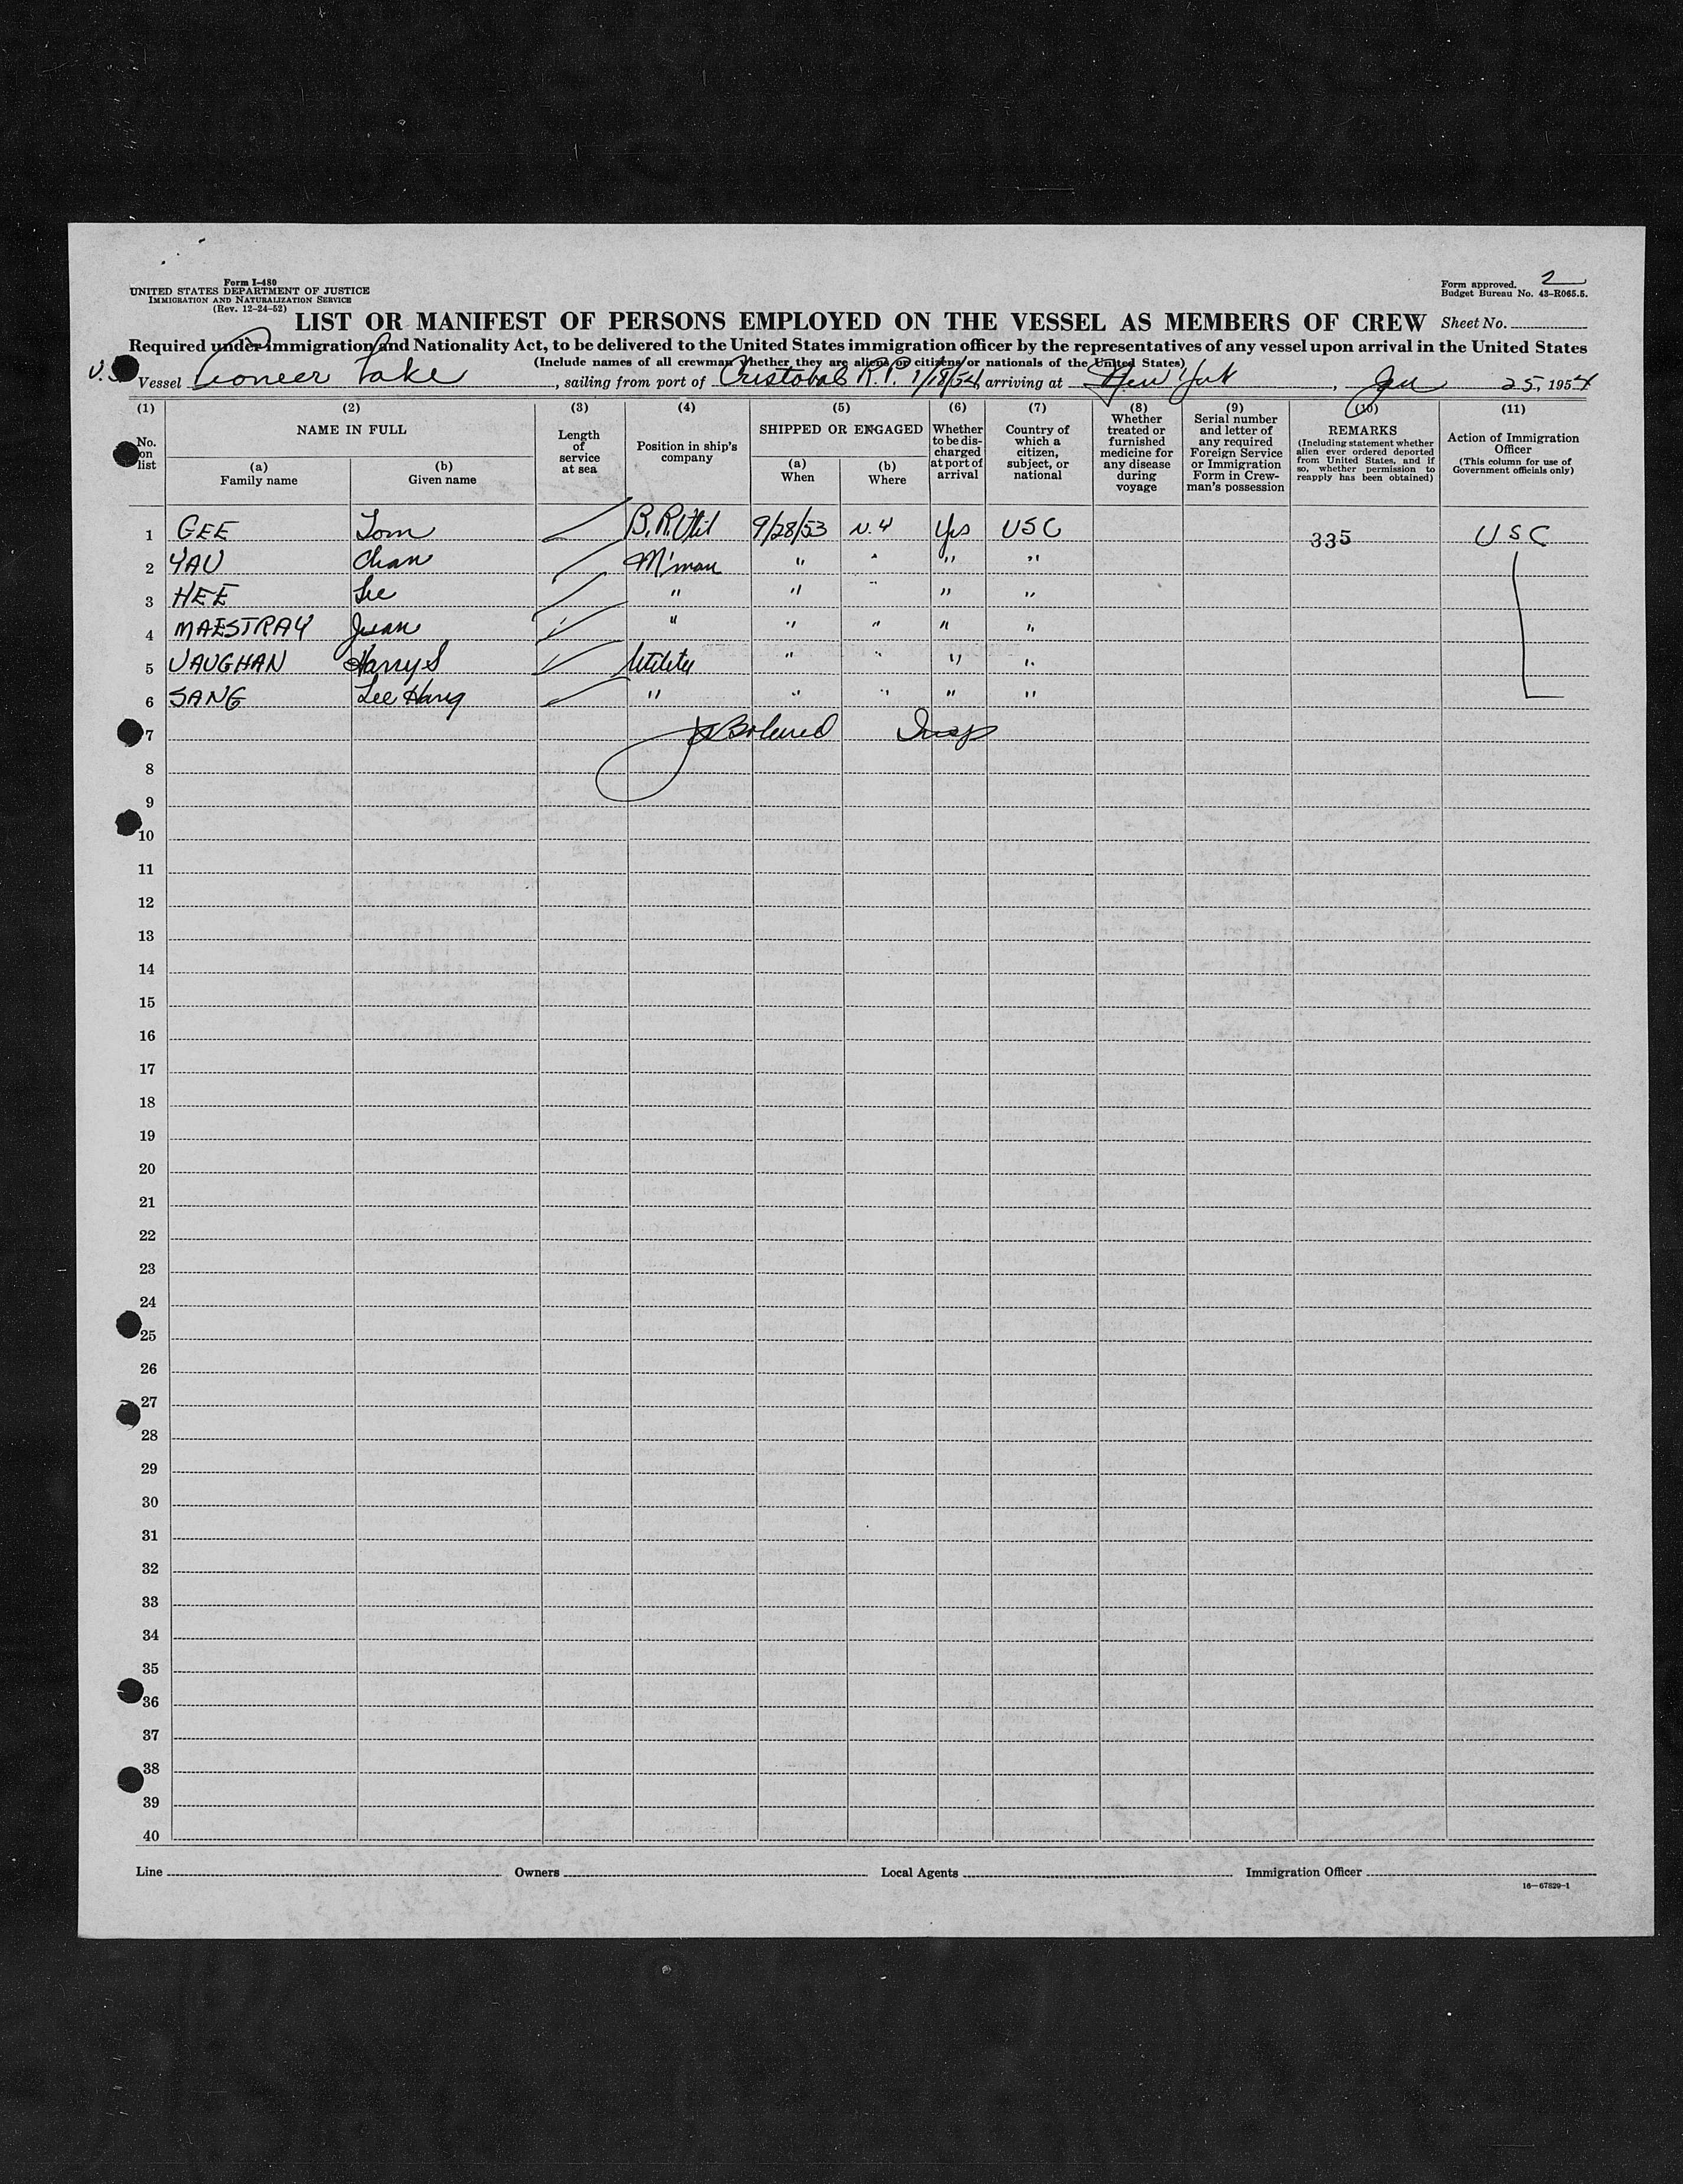 Form I-480
UNITED STATES DEPARTMENT OF JUSTICE
IMMIGRATION AND NATURALIZATION SERVICE
(Rev. 12-24-52)
Form approved.
Budget Bureau No. 43-R065.5.
2
LIST OR MANIFEST OF PERSONS EMPLOYED ON THE VESSEL AS MEMBERS OF CREW Sheet No.
Required under immigration and Nationality Act, to be delivered to the United States immigration officer by the representatives of any vessel upon arrival in the United States
(Include names of all crewman whether they are aliens or citizens or nationals of the United States)
Vessel Pioneer , sailing from port of Cristobal R.P. 1/18/54 arriving at New York , Jan 25, 1954
(1) (2) (3) (4) (5) (6) (7) (8) (9) (10) (11)
No. on list
NAME IN FULL
(a) Family name
(b) Given name
Length of service at sea
Position in ship's company
SHIPPED OR ENGAGED
(a) When
(b) Where
Whether to be discharged at port of arrival
Country of which a citizen, subject, or national
Whether treated or furnished medicine for any disease during voyage
Serial number and letter of any required Foreign Service or Immigration Form in Crewman's possession
REMARKS
(Including statement whether alien ever ordered deported from United States, and if so, whether permission to reapply has been obtained)
Action of Immigration Officer
(This column for use of Government officials only)
1 GEE Tom B.R. Util 9/28/53 N.Y Yes USC 335 USC
2 YAU Chan M'man " " " "
3 HEE Lee " " " " "
4 MAESTRAY Juan " " " " "
5 VAUGHAN Harry S Utility " " " "
6 SANG Lee Hang " " " " "
7 Insp
8
9
10
11
12
13
14
15
16
17
18
19
20
21
22
23
24
25
26
27
28
29
30
31
32
33
34
35
36
37
38
39
40
Line Owners Local Agents Immigration Officer
16—67829-1